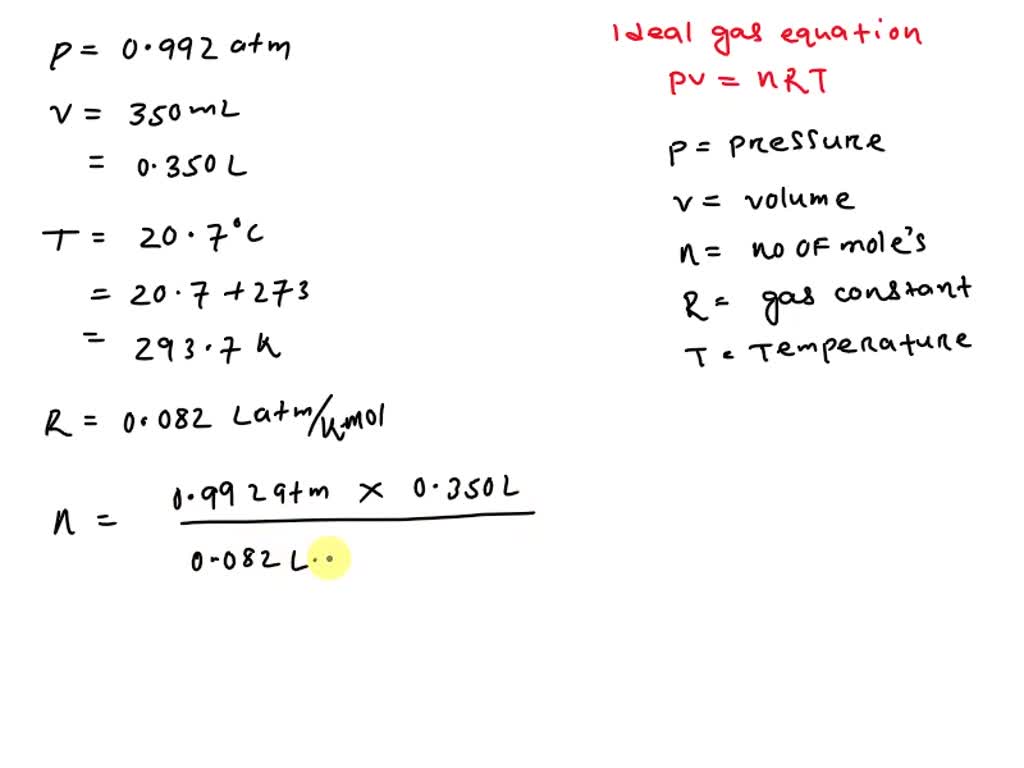 P = 0.992 atm
V = 350 mL
= 0.350 L
T = 20.7°C
= 20.7 + 273
= 293.7 K
R = 0.082 Latm/K mol
n = 0.992 atm × 0.350 L
0.082 L
Ideal gas equation
PV = nRT
P = pressure
V = volume
n = no of mole's
R = gas constant
T = Temperature